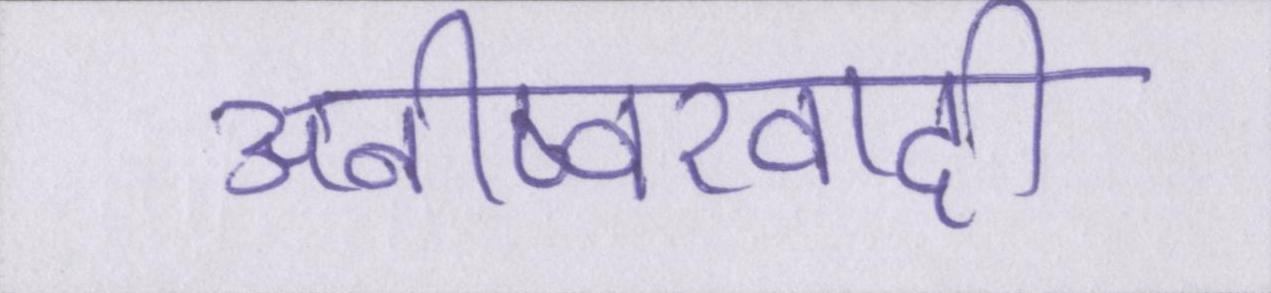 अनीष्वरवादी